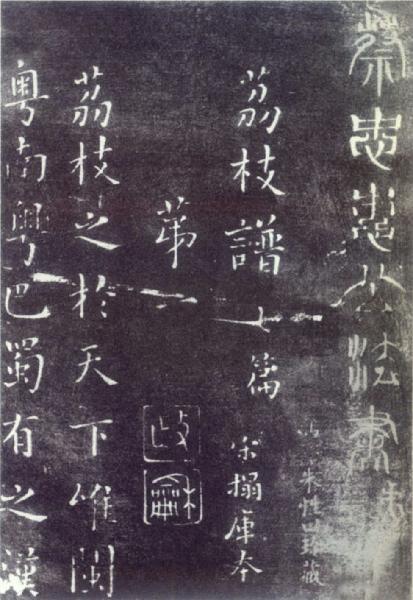 蔡忠惠公法書
朱性珍藏
荔枝譜七篇 宋搨庫本
苐一
荔枝之於天下唯閩
粤南粤巴蜀有之漢